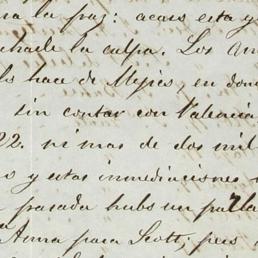 la paz: acaso esta y
la culpa. Los Am
hace de Mejico, en don
sin contar con Valencia
22. ni mas de dos mil
y estas inmediaciones
pasada hubo un
Anna para Scott, pues